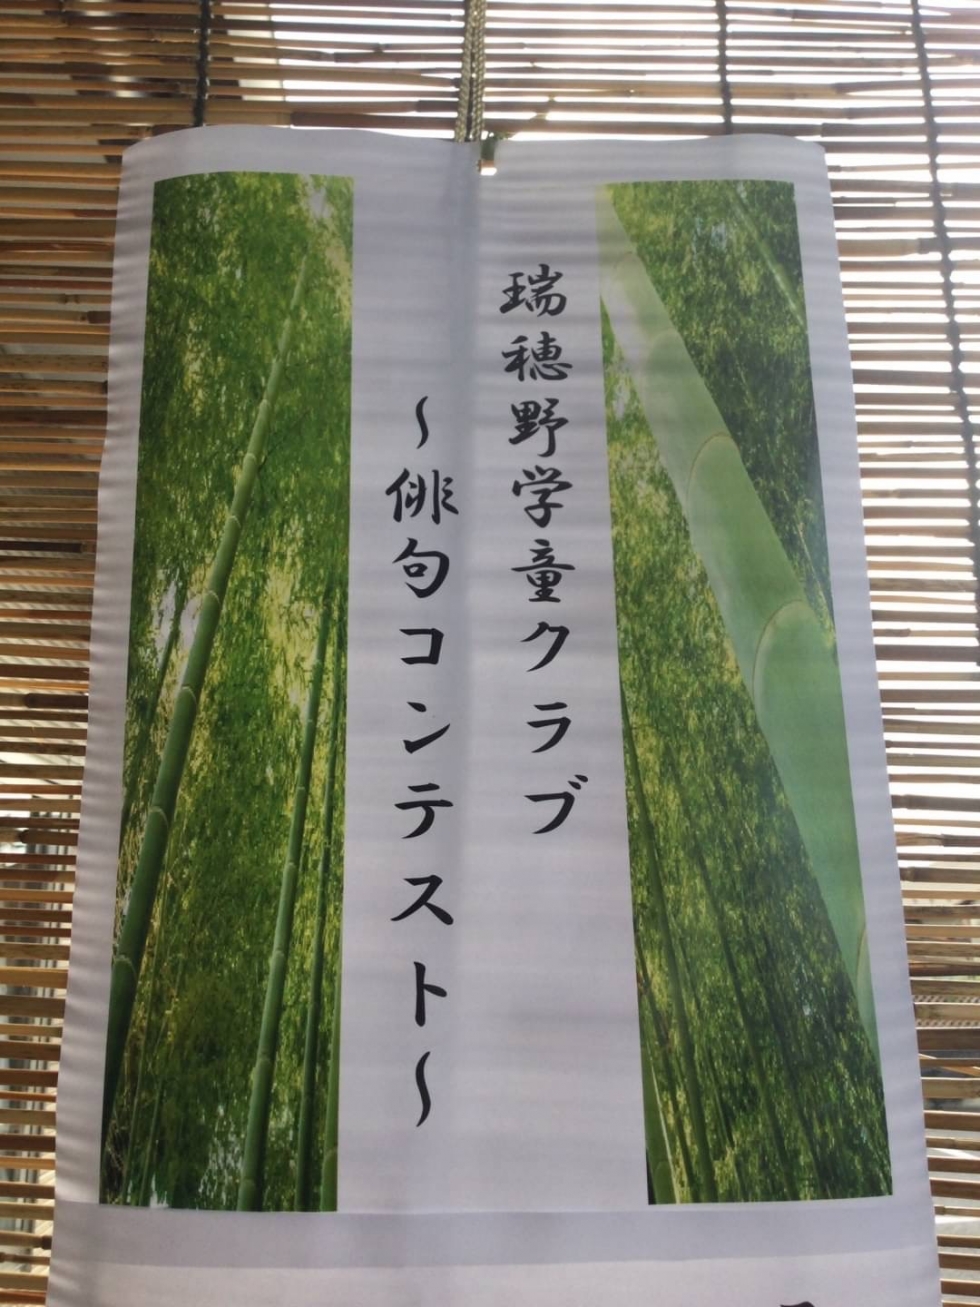 瑞穂野学童クラブ
～俳句コンテスト～